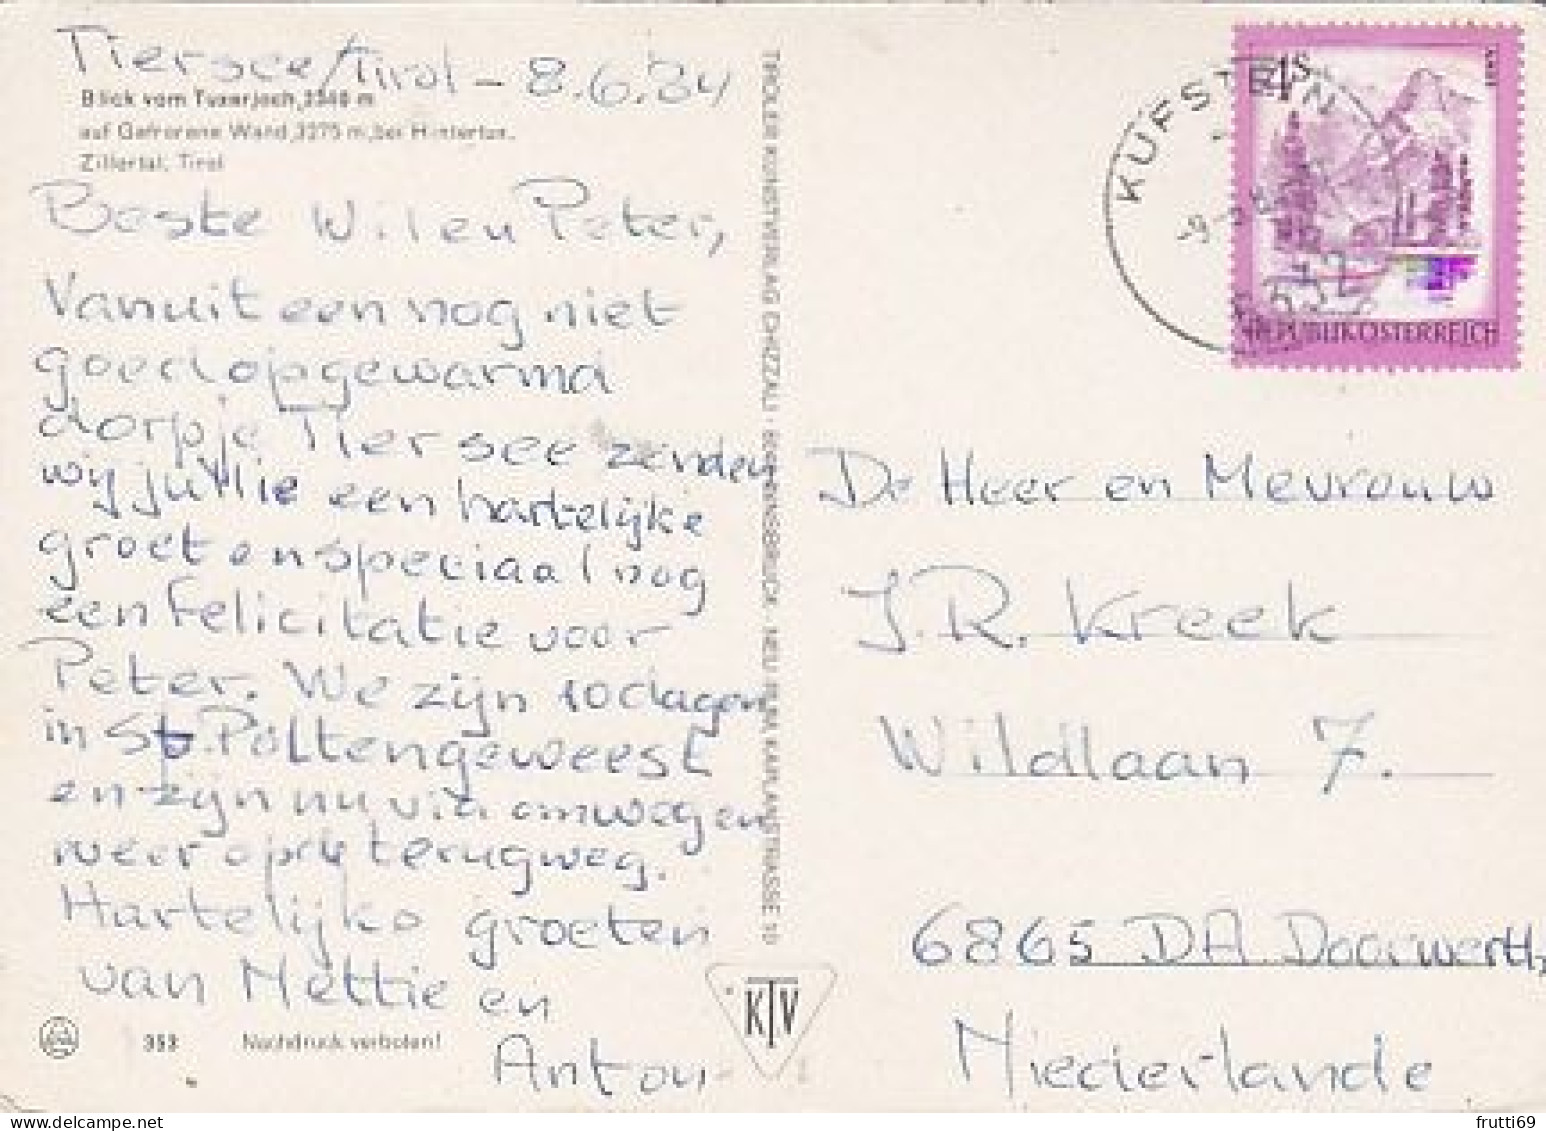 Tiersee/Tirol - 8.6.84
Blick vom Tuxerjoch, 2340 m
auf Gefrorene Wand, 3275 m, bei Hintertux.
Zillertal, Tirol
Beste Wil en Peter,
Vanuit een nog niet
goed opgewarmd
dorpje Tiersee zenden
wij jullie een hartelijke
groet en speciaal nog
een felicitatie voor
Peter. We zijn 10 dagen
in St. Pölten geweest
en zijn nu via omwegen
weer op de terugweg.
Hartelijke groeten
van Nettie en
Anton
353 Nachdruck verboten!
TIROLER KUNSTVERLAG CHIZZALI · INNSBRUCK, NEU-RUM, KAPLANSTRASSE 10
KTV
KUFSTEIN
6332
4S
REPUBLIK ÖSTERREICH
De Heer en Mevrouw
J.R. Kreek
Wildlaan 7.
6865 DA Doorwerth
Niederlande
frutti69